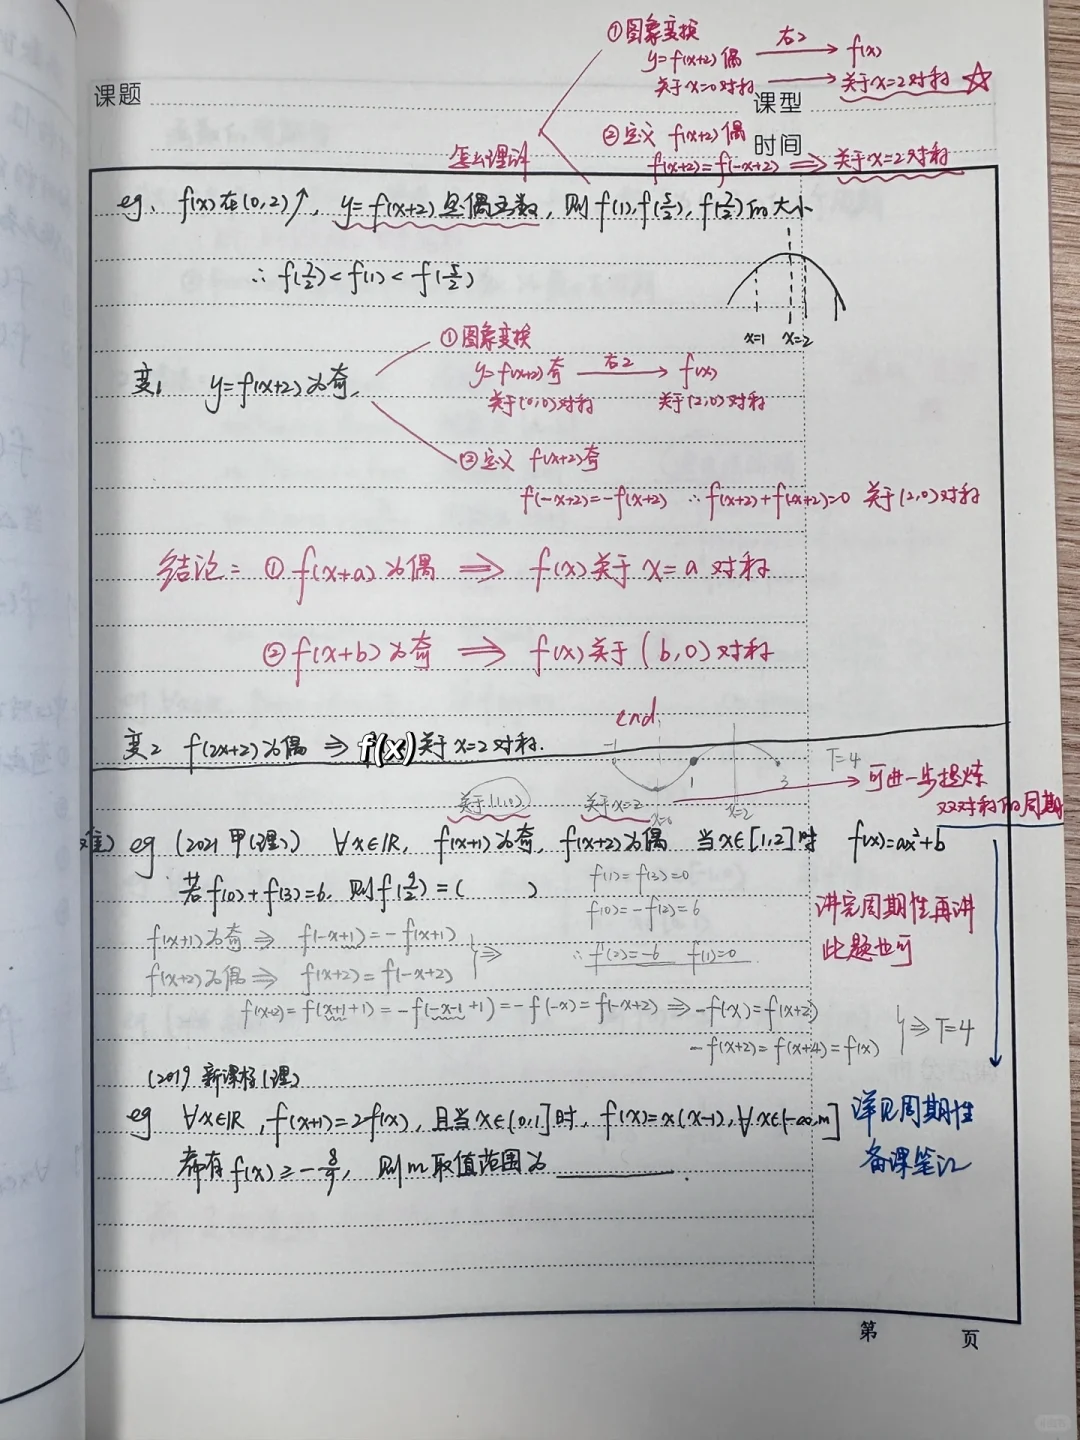 ①图象变换
y=f(x+2)偶 右2→ f(x)
关于x=0对称 → 关于x=2对称 ☆
课题
课型
②定义 f(x+2)偶
时间
怎么理解
f(x+2)=f(-x+2) ⇒ 关于x=2对称
eg. f(x)在(0,2)↑, y=f(x+2)是偶函数, 则f(1),f(5/2),f(7/2)的大小
∴ f(7/2)<f(1)<f(5/2)
x=1 x=2
①图象变换
变1 y=f(x+2)为奇,
y=f(x+2)奇 右2→ f(x)
关于(0,0)对称 关于(2,0)对称
②定义 f(x+2)奇
f(-x+2)=-f(x+2) ∴f(x+2)+f(-x+2)=0 关于(2,0)对称
结论: ① f(x+a)为偶 ⇒ f(x)关于x=a对称
② f(x+b)为奇 ⇒ f(x)关于(b,0)对称
end.
变2 f(2x+2)为偶 ⇒ f(x)关于x=2对称.
-1 1 3 T=4
x=0 x=2
可进一步提炼
双对称的周期
关于(1,0) 关于x=2
(难) eg (2021甲(理)) ∀x∈R, f(x+1)为奇, f(x+2)为偶 当x∈[1,2]时 f(x)=ax²+b
若f(0)+f(3)=6. 则f(9/2)=( )
f(1)=f(3)=0
f(0)=-f(2)=6
讲完周期性再讲
此题也可
f(x+1)为奇 ⇒ f(-x+1)=-f(x+1)
f(x+2)为偶 ⇒ f(x+2)=f(-x+2)
} ⇒ ∴ f(2)=-6 f(1)=0
f(x+2)=f(x+1+1)=-f(-x-1+1)=-f(-x)=f(-x+2) ⇒ -f(x)=f(x+2)
-f(x+2)=f(x+4)=f(x)
} ⇒ T=4
(2019 新课标(理)
eg ∀x∈R, f(x+1)=2f(x), 且当x∈(0,1]时, f(x)=x(x-1), ∀x∈(-∞,m]
都有f(x)≥-8/9, 则m取值范围为________.
详见周期性
备课笔记
第 页